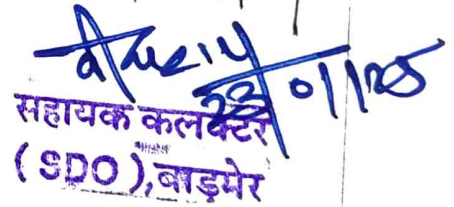 23/01/25
सहायक कलक्टर
(SDO),बाड़मेर